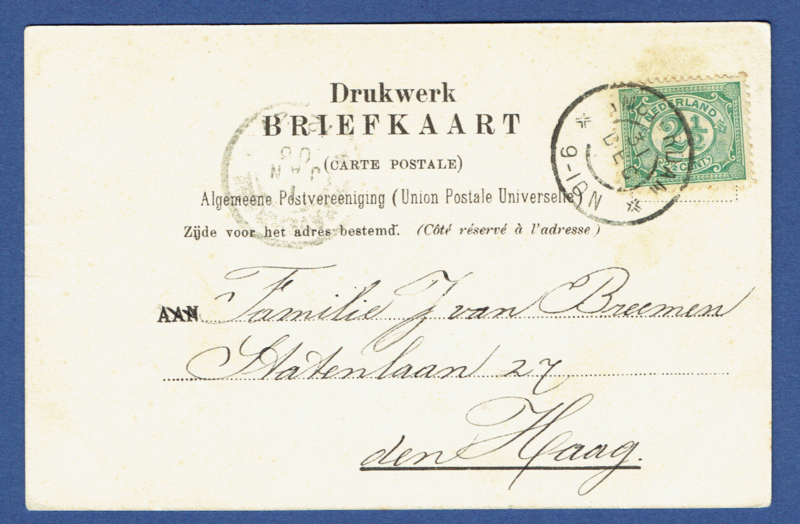 Drukwerk
BRIEFKAART
(CARTE POSTALE)
Algemeene Postvereeniging (Union Postale Universelle)
Zijde voor het adres bestemd. (Côté réservé à l'adresse)
NEDERLAND
2½
CENT
DEC
9-10N
JAN
AAN Familie J van Breemen
Statenlaan 27
den Haag.